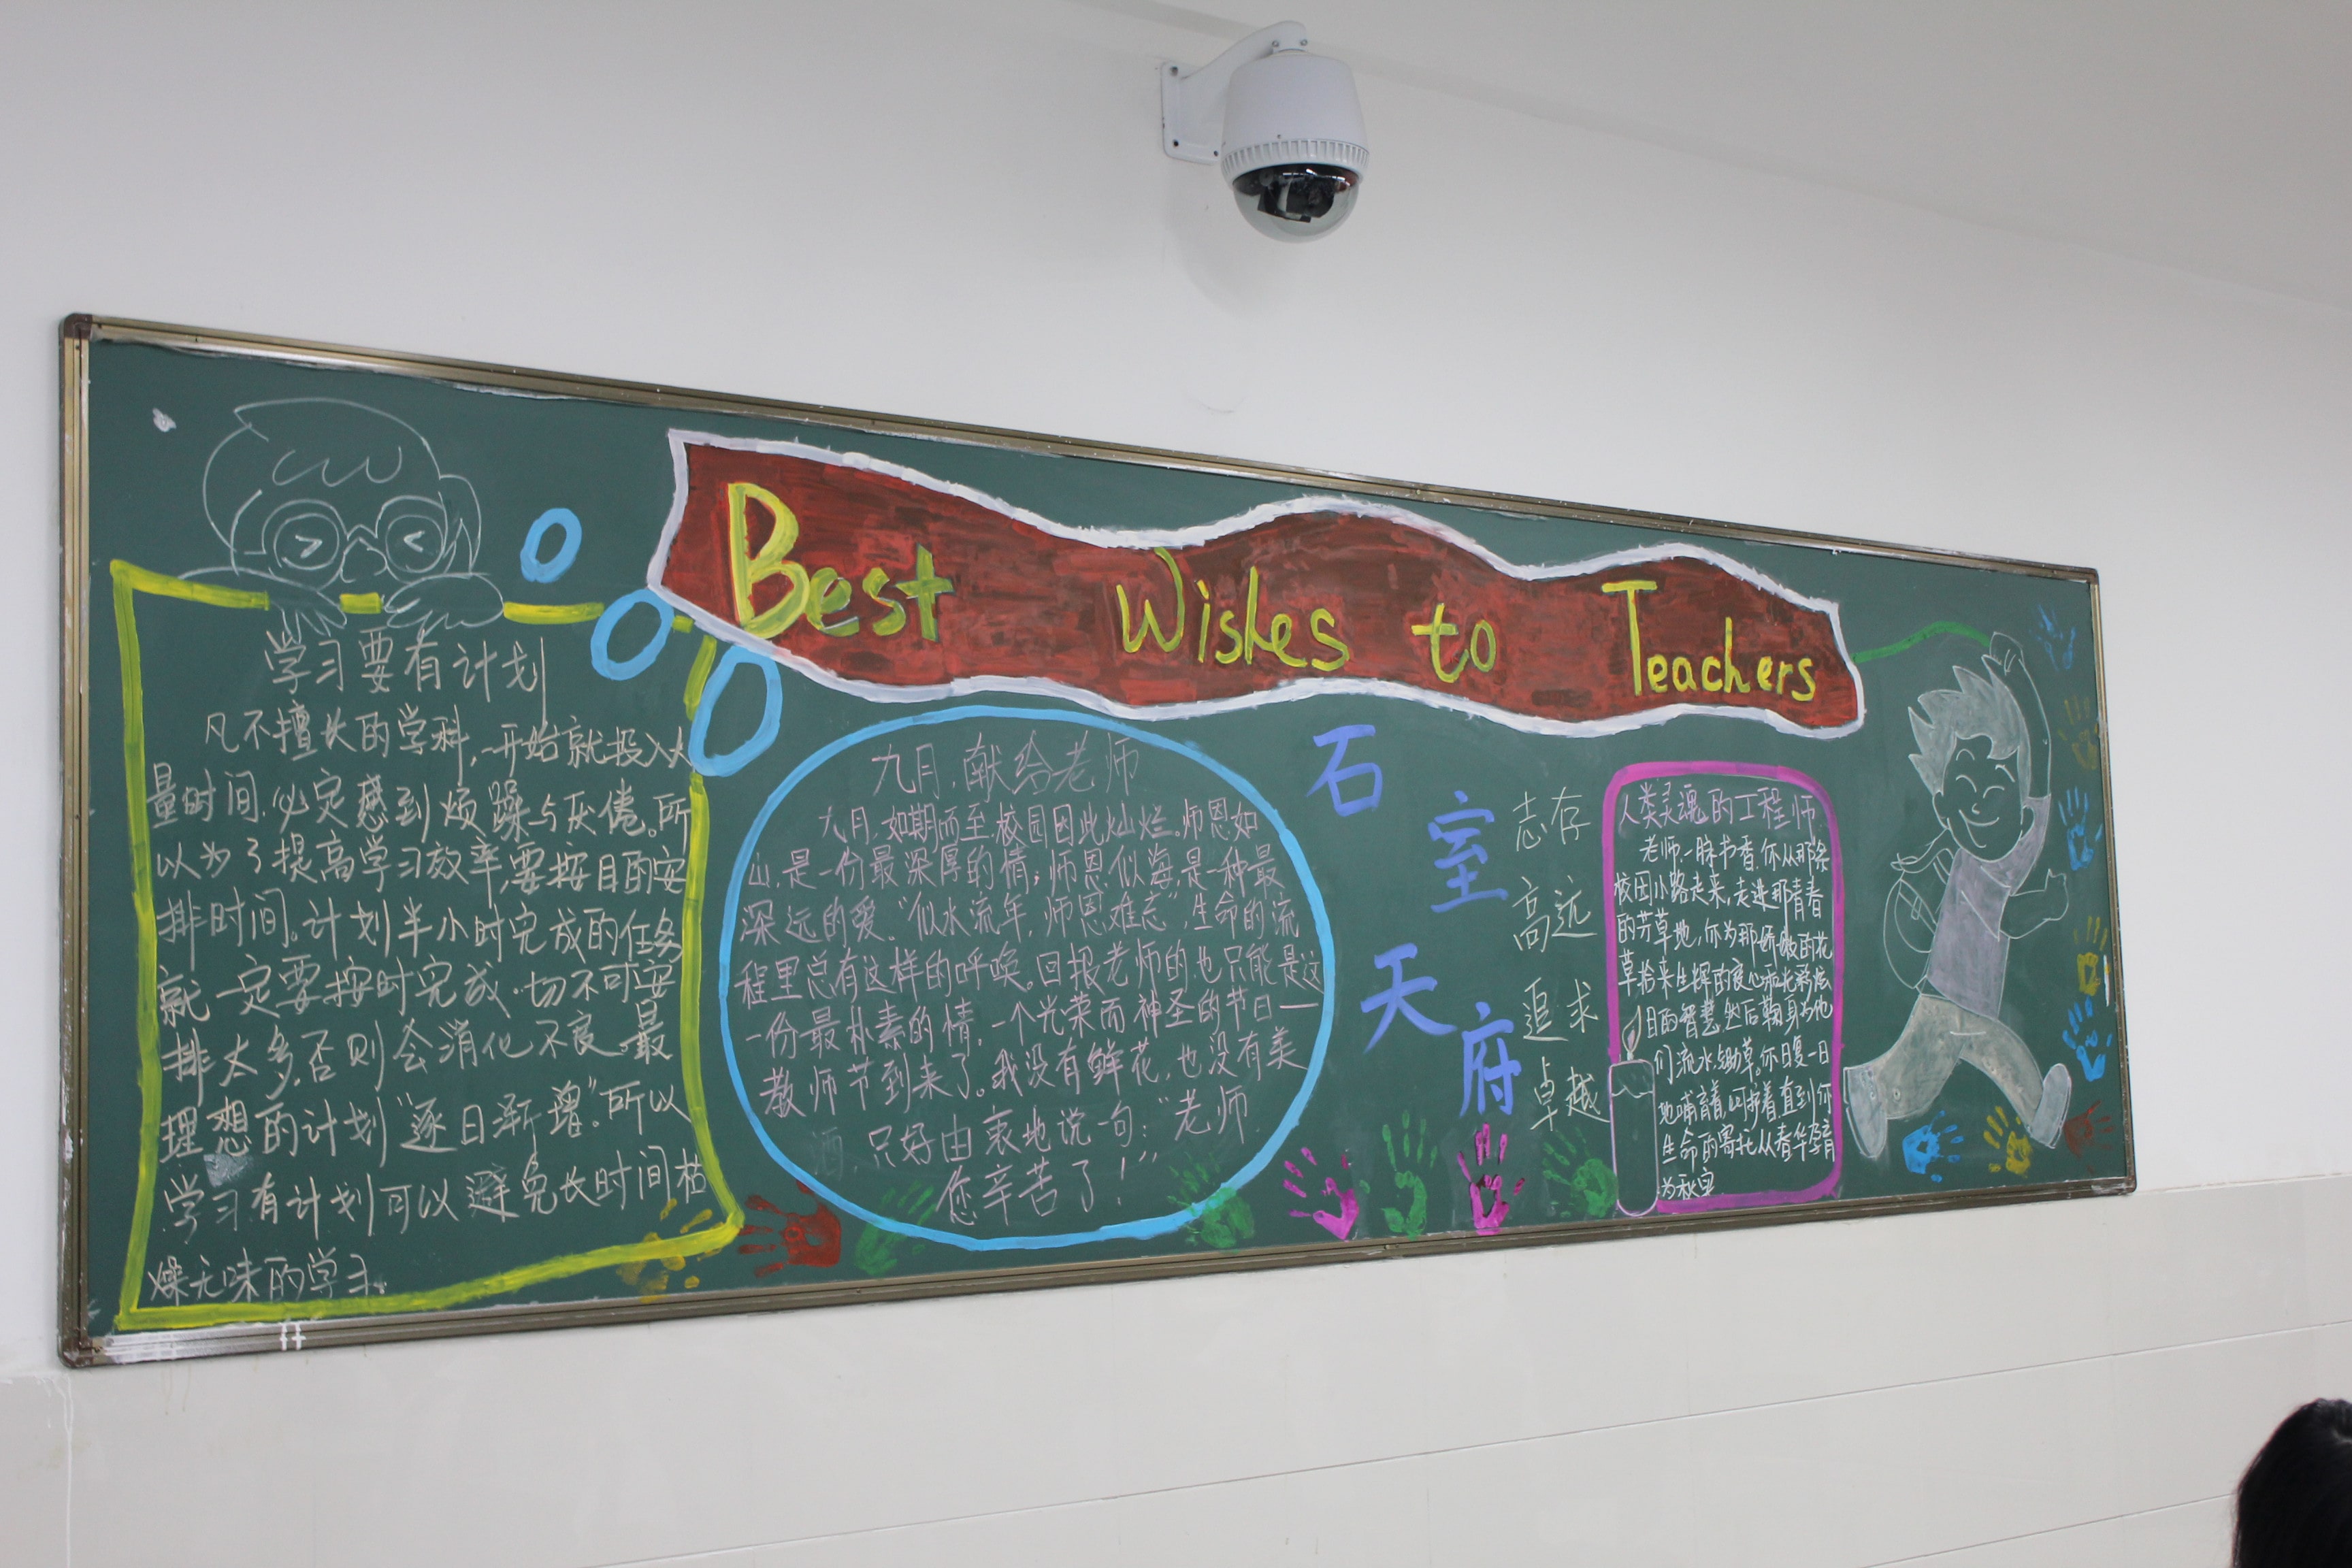 Best Wishes to Teachers
学习要有计划
凡不擅长的学科,一开始就投入大
量时间.必定感到烦躁与厌倦。所
以为了提高学习效率,要按目的安
排时间。计划半小时完成的任务
就一定要按时完成.切不可安
排太多,否则会消化不良。最
理想的计划“逐日渐增”。所以
学习有计划可以避免长时间枯
燥无味的学习。
九月,献给老师
九月.如期而至.校园因此灿烂.师恩如
山,是一份最深厚的情;师恩似海,是一种最
深远的爱。“似水流年,师恩难忘”,生命的流
程里总有这样的呼唤。回报老师的,也只能是这
一份最朴素的情.一个光荣而神圣的节日一
教师节到来了。我没有鲜花,也没有美
酒,只好由衷地说一句:“老师
您辛苦了!”
石
室
天
府
志存
高远
追求
卓越
人类灵魂的工程师
老师.一脉书香.你从那条
校园小路走来,走进那青春
的芳草地,你为那娇嫩的花
草拾来生辉的良心和光彩炫
目的智慧.然后鞠身为他
们流水锄草。你日复一日
地哺育着,呵护着.直到你
生命的寄托从春华孕育
为秋实